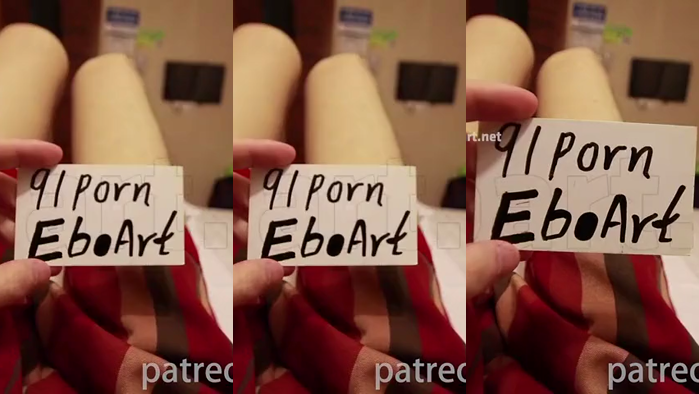 91 Porn
Ebo Art
patreo
91 Porn
Ebo Art
patreo
rt.net
91 Porn
Ebo Art
patreo